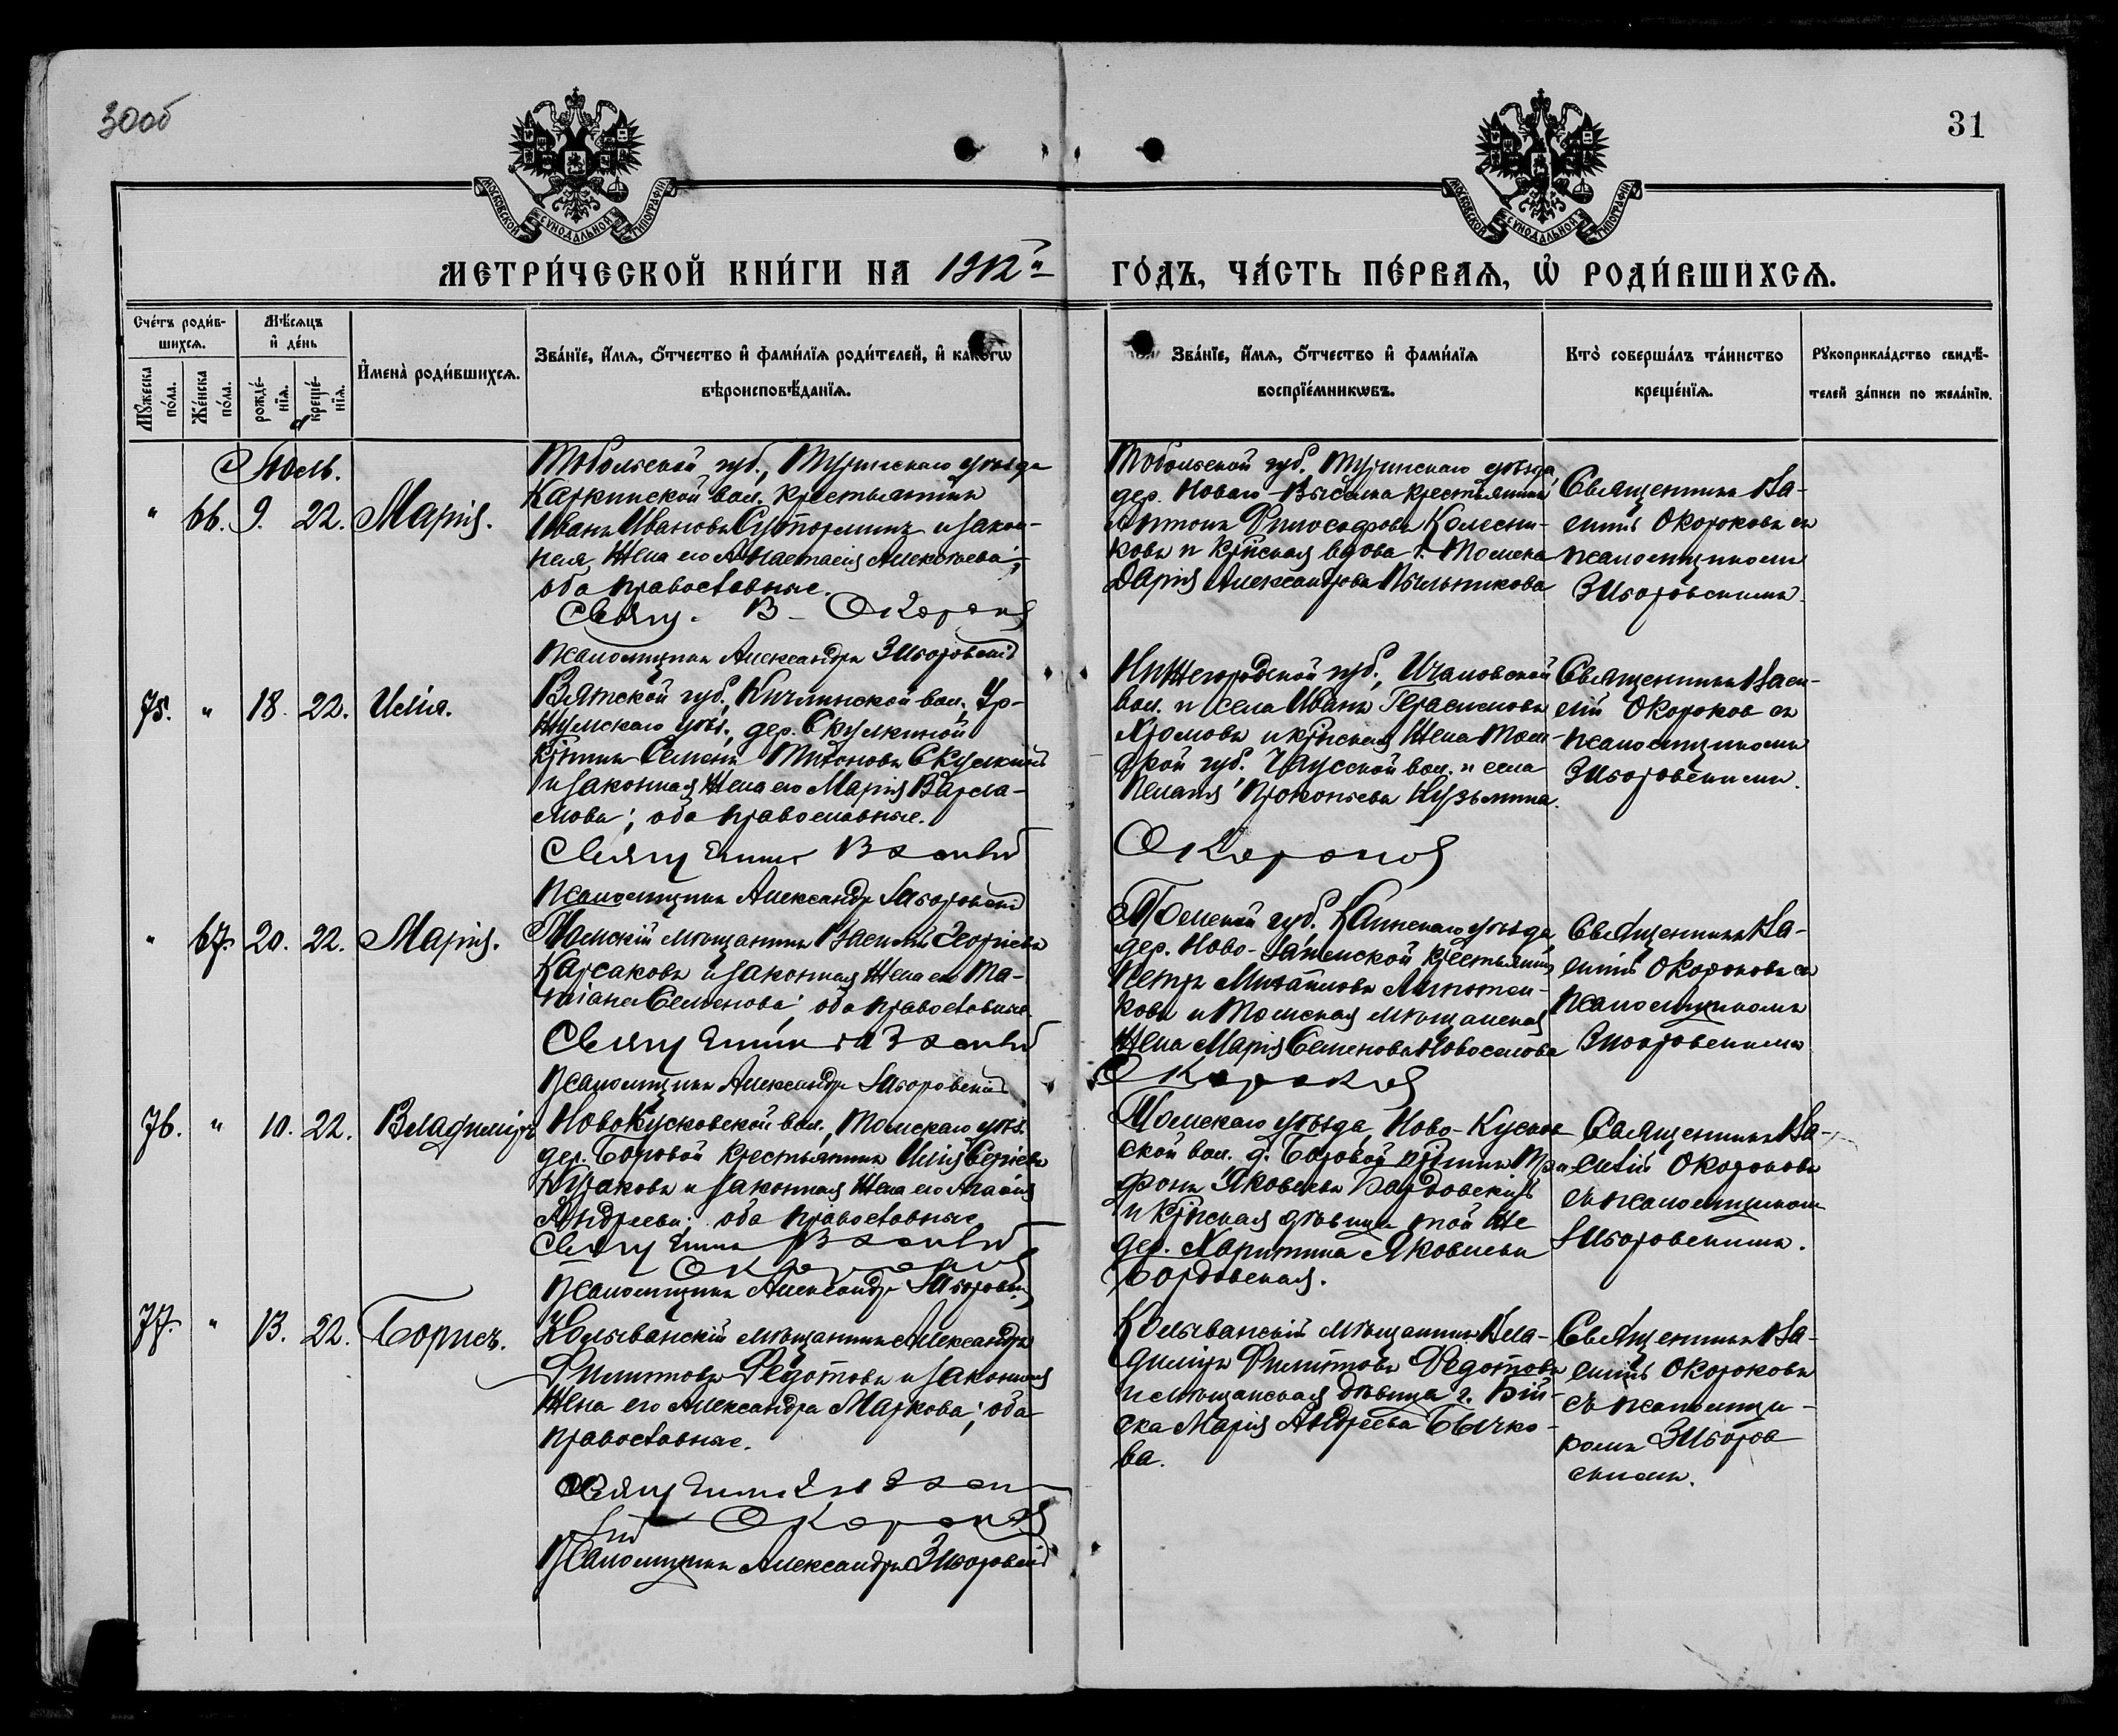 30об
31
МОСКОВСКОЙ СѴНОДАЛЬНОЙ ТИПОГРАФІИ
МОСКОВСКОЙ СѴНОДАЛЬНОЙ ТИПОГРАФІИ
МЕТРИ́ЧЕСКОЙ КНИ́ГИ НА 1912й
ГО́ДЪ, ЧА́СТЬ ПЕ́РВАѦ, Ѡ҆ РОДИ́ВШИХСѦ.
Сче́тъ роди́в-
шихсѧ.
Мꙋ́жеска по́ла.
Же́нска по́ла.
Мѣ́сѧцъ
и҆ де́нь
рожде́-
нїѧ.
креще́-
нїѧ.
И҆мена̀ роди́вшихсѧ.
Зва́нїе, и҆́мѧ, ѻ҆́тчество и҆ фами́лїѧ роди́телей, и҆ како́гѡ
вѣроисповѣ́данїѧ.
Зва́нїе, и҆́мѧ, ѻ҆́тчество и҆ фами́лїѧ
воспрїе́мникѡвъ.
Кто̀ соверша́лъ та́инство
креще́нїѧ.
Рꙋкоприкла́дство свидѣ́-
телей за́писи по жела́нїю.
Іюль.
" 66. 9. 22. Марія.
Тобольской губ., Туринскаго уѣзда
Каркинской вол. крестьянинъ
Иванъ Ивановъ Сутормин и закон-
ная жена его Анастасія Алексѣева;
оба православные.
Свящ. В. Окороков
Псаломщикъ Александръ Зиворовскій
Тобольской губ. Туринскаго уѣзда
дер. Новаго-Выселка крестьянинъ
Антонъ Философовъ Колесни-
ковъ и кр-нская вдова г. Томска
Дарія Александрова Пыльникова
Священникъ Ва-
силій Окороковъ съ
псаломщикомъ
Зиворовскимъ.
75. " 18. 22. Илія.
Вятской губ., Кичминской вол., Ур-
жумскаго уѣз., дер. Скулкиной
кр-нинъ Семенъ Тихоновъ Скулкинъ
и законная жена его Марія Варла-
мова; оба православные.
Священник Василій
Псаломщикъ Александръ Зиворовскій
Нижегородской губ., Ичаловской
вол. и села Иванъ Герасимовъ
Хромовъ и кр-нская жена Том-
ской губ. Чаусской вол. и села
Пелагія Прокопьева Кузьмина.
Окороков
Священникъ Васи-
лій Окороков съ
псаломщикомъ
Зиворовскимъ.
" 67. 20. 22. Марія.
Томскій мѣщанинъ Василій Георгіевъ
Карсаковъ и законная жена его Та-
тіана Семенова; оба православные.
Священник Василій
Псаломщикъ Александръ Зиворовскій
Томской губ. Каинскаго уѣзда
дер. Ново- крестьянинъ
Петръ Михайловъ
ковъ и Томская мѣщанская
жена Марія Семенова Новоселова
Окороков
Священникъ Ва-
силій Окороковъ съ
псаломщикомъ
Зиворовскимъ
76. " 10. 22. Владиміръ
Ново Кусковской вол., Томскаго уѣз.
дер. Боровой крестьянинъ Илія Сергіевъ
Кураковъ и законная жена его
Андреева; оба православные
Священник Василій
Окороков
Псаломщикъ Александръ Зиворовскій
Томскаго уѣзда, Ново-Кусков-
ской вол. д. Боровой кр-нинъ Три-
фонъ Яковлевъ Бардовскій
и кр-нская дѣвица той же
дер. Харитина Яковлева
Бордовская.
Священникъ Ва-
силій Окороковъ
съ псаломщиком
Зиворовскимъ.
77. " 13. 22. Борисъ.
Колыванскій мѣщанинъ Александръ
Филиповъ Федотовъ и законная
жена его Александра Маркова; оба
православные.
Священник Васи-
лій Окороков
Псаломщикъ Александръ Зиворовскій
Колыванскій мѣщанинъ Вла-
диміръ Филиповъ Федотовъ
и мѣщанская дѣвица г. Бій-
ска Марія Андреева Бычко-
ва.
Священникъ Ва-
силій Окороковъ
съ псаломщи-
комъ Зиворов
скимъ.